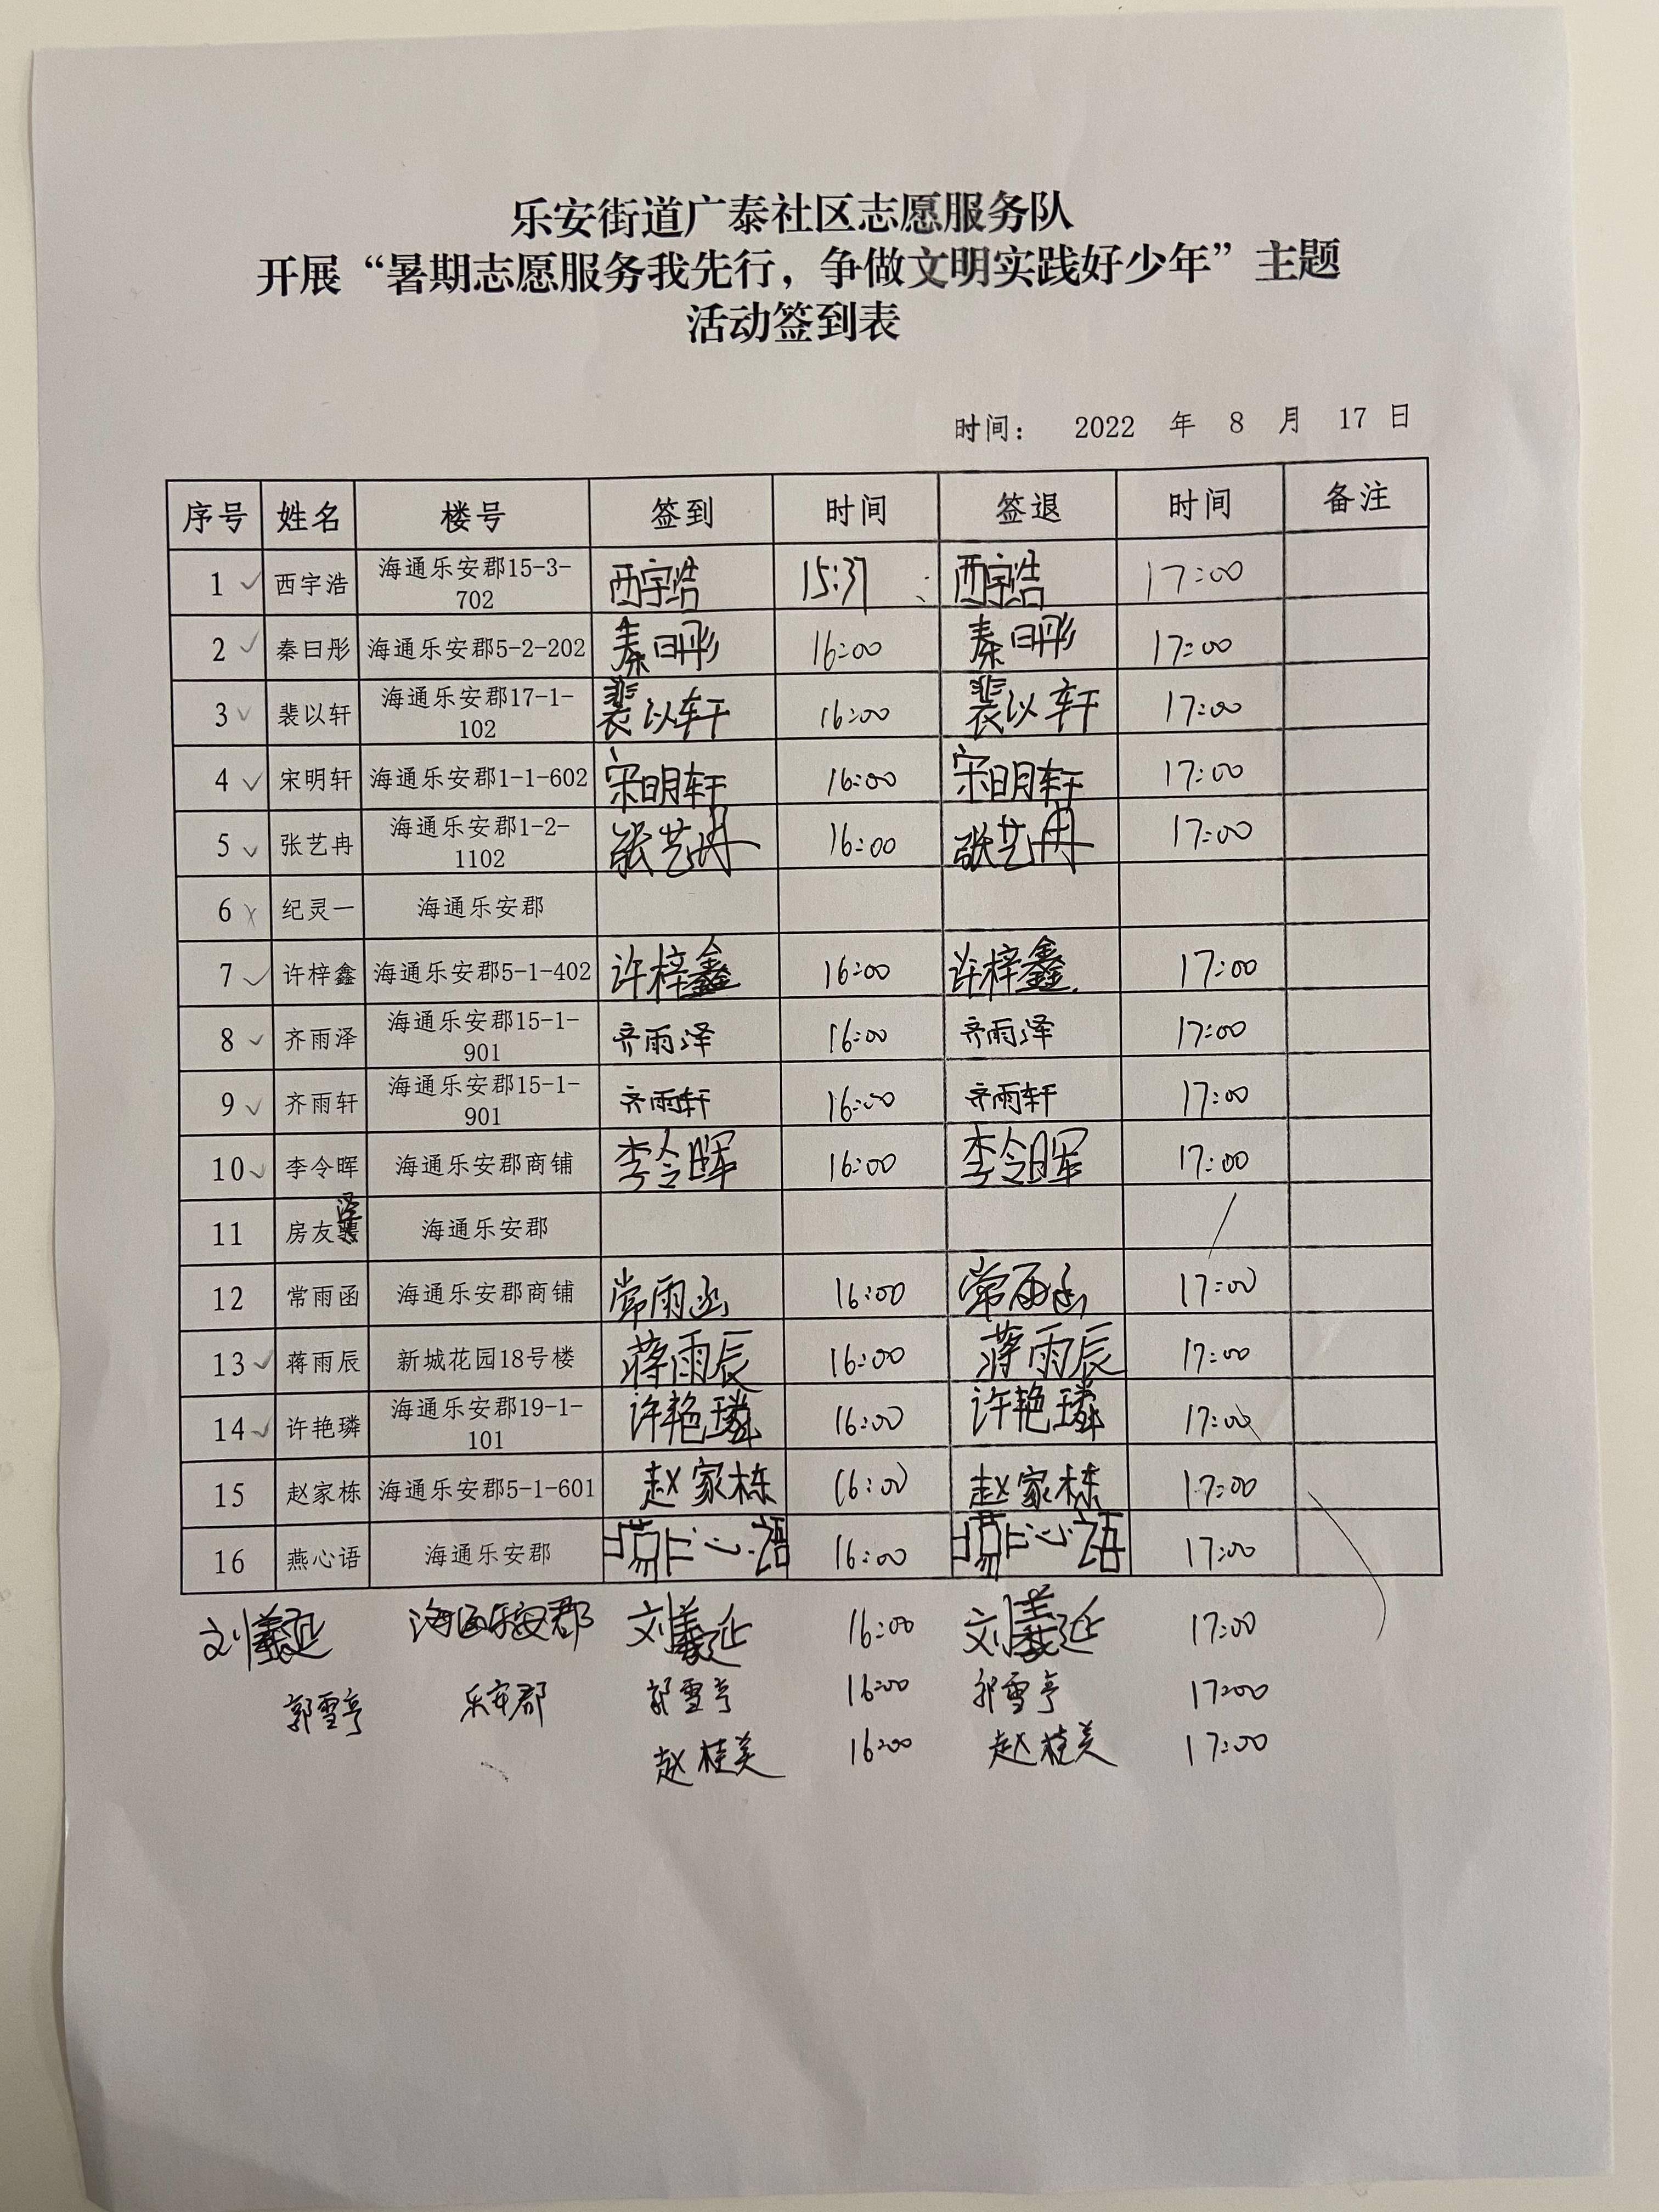 乐安街道广泰社区志愿服务队
开展“暑期志愿服务我先行，争做文明实践好少年”主题
活动签到表
时间： 2022 年 8 月 17 日
序号 姓名 楼号 签到 时间 签退 时间 备注
1 西宇浩 海通乐安郡15-3-702 西宇浩 15:37 西宇浩 17:00
2 秦曰彤 海通乐安郡5-2-202 秦曰彤 16:00 秦曰彤 17:00
3 裴以轩 海通乐安郡17-1-102 裴以轩 16:00 裴以轩 17:00
4 宋明轩 海通乐安郡1-1-602 宋明轩 16:00 宋明轩 17:00
5 张艺冉 海通乐安郡1-2-1102 张艺冉 16:00 张艺冉 17:00
6 纪灵一 海通乐安郡
7 许梓鑫 海通乐安郡5-1-402 许梓鑫 16:00 许梓鑫 17:00
8 齐雨泽 海通乐安郡15-1-901 齐雨泽 16:00 齐雨泽 17:00
9 齐雨轩 海通乐安郡15-1-901 齐雨轩 16:00 齐雨轩 17:00
10 李令晖 海通乐安郡商铺 李令晖 16:00 李令晖 17:00
11 房友 海通乐安郡
12 常雨函 海通乐安郡商铺 常雨函 16:00 常雨函 17:00
13 蒋雨辰 新城花园18号楼 蒋雨辰 16:00 蒋雨辰 17:00
14 许艳璘 海通乐安郡19-1-101 许艳璘 16:00 许艳璘 17:00
15 赵家栋 海通乐安郡5-1-601 赵家栋 16:00 赵家栋 17:00
16 燕心语 海通乐安郡 燕心语 16:00 燕心语 17:00
刘義延 海通乐安郡 刘義延 16:00 刘義延 17:00
郭雪亭 乐安郡 郭雪亭 16:00 郭雪亭 17:00
赵桂美 16:00 赵桂美 17:00